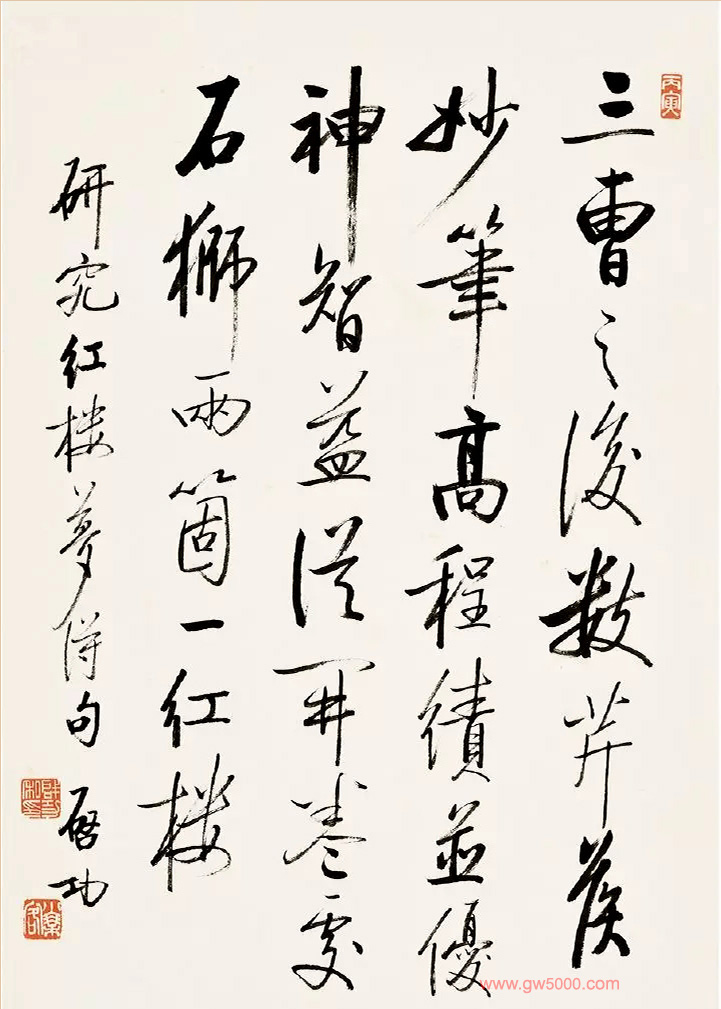 丙寅
三曹之後数芹侯
妙筆高程績並優
神智益從開卷處
石獅兩箇一红楼
研究红楼夢得句
啓功
www.gw5000.com